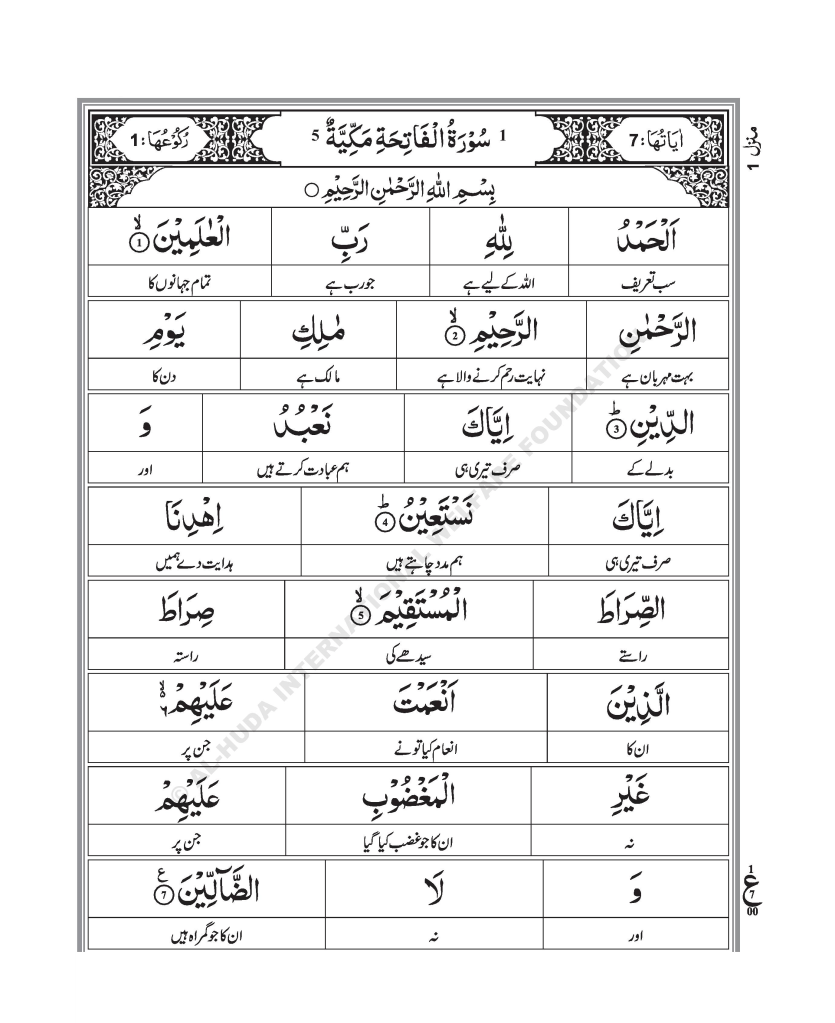 اٰيَاتُهَا: 7 1 سُوْرَةُ الْفَاتِحَةِ مَكِّيَّةٌ 5 رُكُوْعُهَا: 1
منزل 1
بِسْمِ اللّٰهِ الرَّحْمٰنِ الرَّحِيْمِ ○
اَلْحَمْدُ لِلّٰهِ رَبِّ الْعٰلَمِيْنَ ۙ 1
سب تعریف اللہ کے لیے ہے جو رب ہے تمام جہانوں کا
الرَّحْمٰنِ الرَّحِيْمِ ۙ 2 مٰلِكِ يَوْمِ
بہت مہربان ہے نہایت رحم کرنے والا ہے مالک ہے دن کا
الدِّيْنِ ؕ 3 اِيَّاكَ نَعْبُدُ وَ
بدلے کے صرف تیری ہی ہم عبادت کرتے ہیں اور
اِيَّاكَ نَسْتَعِيْنُ ؕ 4 اِهْدِنَا
صرف تیری ہی ہم مدد چاہتے ہیں ہدایت دے ہمیں
الصِّرَاطَ الْمُسْتَقِيْمَ ۙ 5 صِرَاطَ
راستے سیدھے کی راستہ
الَّذِيْنَ اَنْعَمْتَ عَلَيْهِمْ ۙ ۶
ان کا انعام کیا تو نے جن پر
غَيْرِ الْمَغْضُوْبِ عَلَيْهِمْ
نہ ان کا جو غضب کیا گیا جن پر
وَ لَا الضَّآلِّيْنَ ع 7
اور نہ ان کا جو گمراہ ہیں
1
ع 7
00
© AL-HUDA INTERNATIONAL WELFARE FOUNDATION